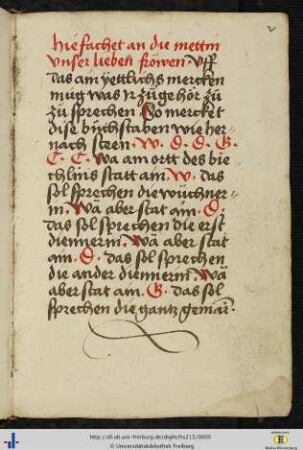 2
hie fachet an die mettin
vnser lieben fröwen. vff
das ain yettlichs mercken
mug was ir zů gehör zů
zů sprechen So merckēt
dise bůchstaben wie her
nach steen. W. D. D. G.
C. C. Wa am ortt des bie
chlins statt ain. W. das
sol sprechen die wůchner
in. Wā aber stat ain. D.
das sol sprechen die erst
diennerin. Wā aber stat
ain. D. das sol sprechen
die ander diennerin. Wā
aber stat am. G. das sol
sprechen die gantz gemain.
http://dl.ub.uni-freiburg.de/diglit/hs215/0005
© Universitätsbibliothek Freiburg